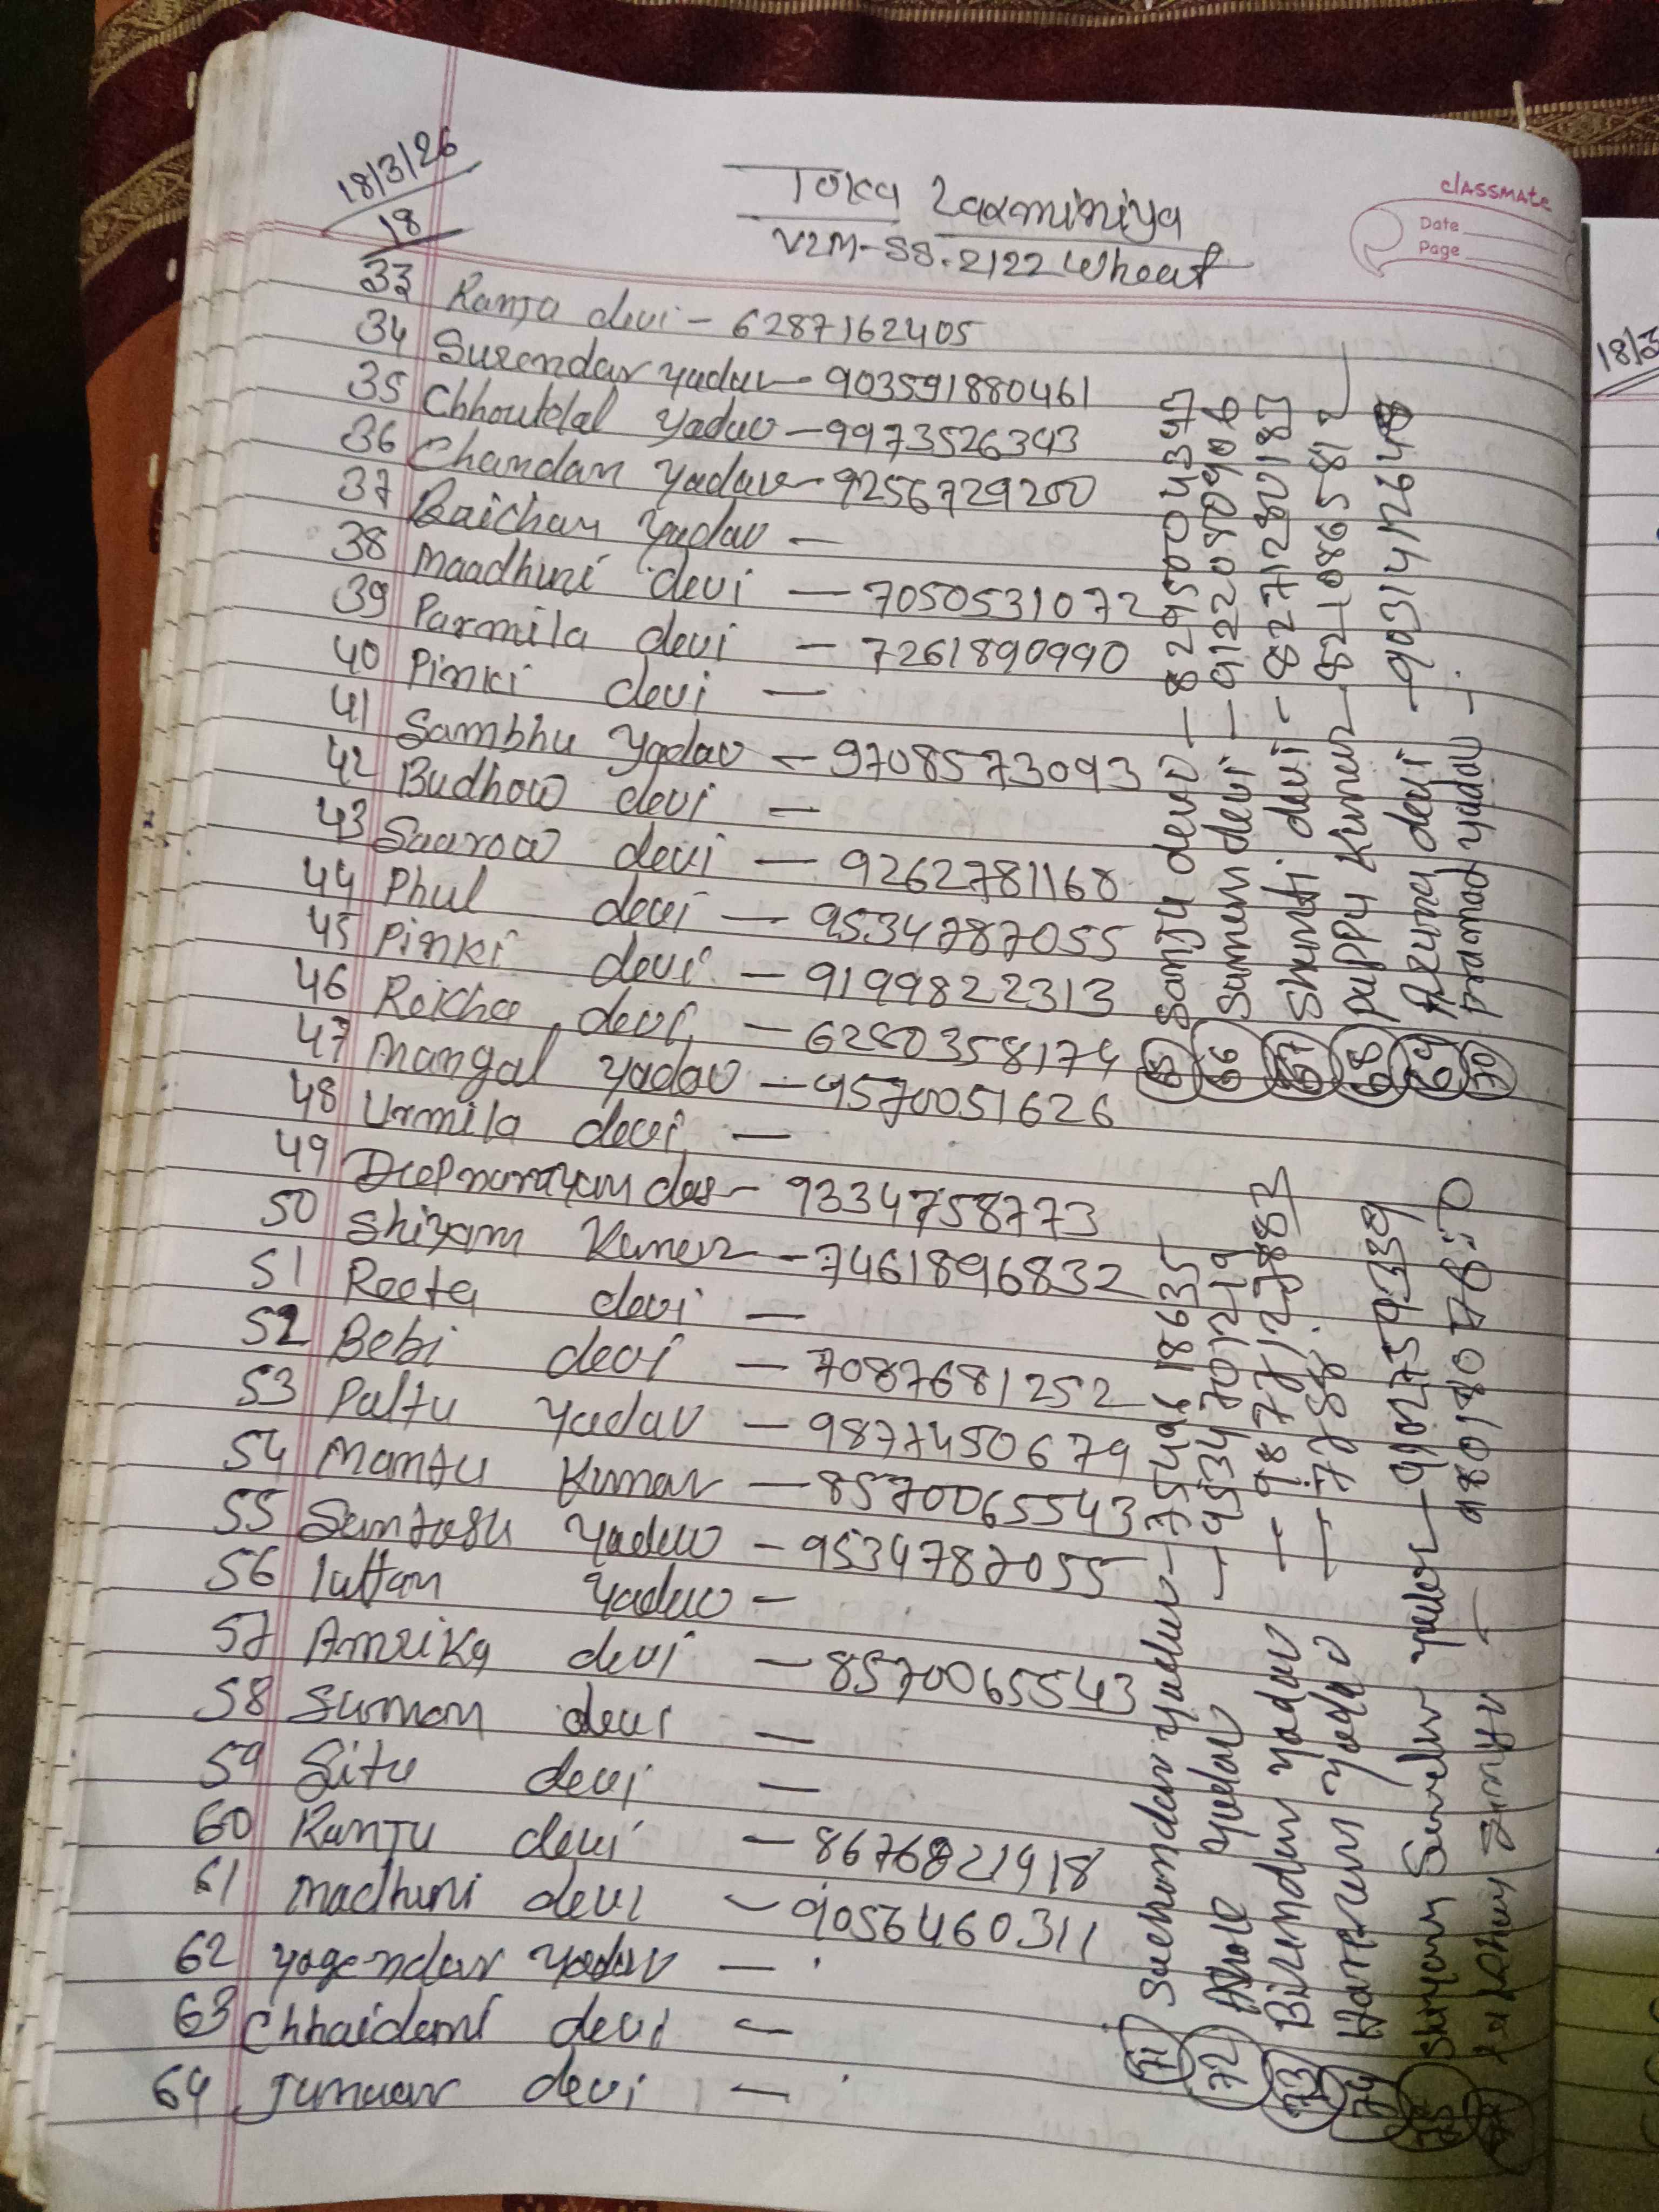 18/3/26
18
Toka Laxminiya
V2M-SS.2122 Wheat
classmate
Date
Page
33 Ranja devi - 6287162405
34 Surendar yadav - 903591880461
35 Chhoutelal Yadav - 9973526343
36 Chandan Yadav - 9256729200
37 Baichan Yadav -
38 Maadhuni devi - 7050531072
39 Parmila devi - 7261890990
40 Pinki devi -
41 Sambhu Yadav - 9708573093
42 Budhow devi -
43 Saarow devi - 9262781168
44 Phul devi - 9534787055
45 Pinki devi - 9199822313
46 Rekha devi - 6280358174
47 Mangal Yadav - 9570051626
48 Urmila devi -
49 Deepnarayan das - 9334758773
50 Shiyam Kumar - 7461896832
51 Reeta devi -
52 Bebi devi - 7087681252
53 Paltu Yadav - 9877450679
54 Mantu Kumar - 8570065543
55 Santosh Yadav - 9534787055
56 lattan Yadav -
57 Amrika devi - 8570065543
58 Suman devi -
59 Sita devi -
60 Ranju devi - 8676821918
61 Madhuni devi - 9056460311
62 Yogendar Yadav -
63 Chhaidami devi -
64 devi -
65 Sanju devi - 8295004347
66 Sumem devi - 9122080906
67 Shanti devi - 8271280187
68 Puppy Kumar - 8210865812
69 Aruna devi - 9031412648
70 Pramod yadav -
71 yadav - 7549618635
72 Ashok Yadav - 9534701219
73 Birendar Yadav - 9877127883
74 Hareram Yadav - 7788
75 Shiyam Sundar yadav - 9902759339
18/3